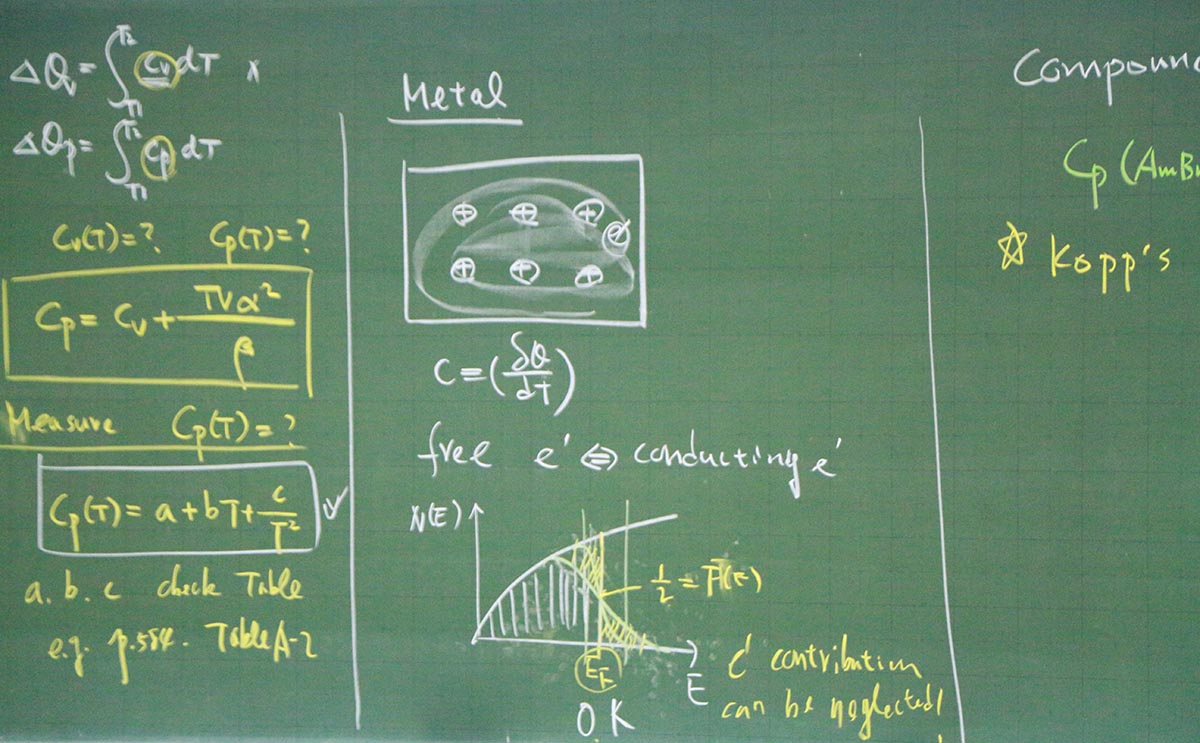 ΔQv = ∫T1T2 Cv dT x
ΔQp = ∫T1T2 Cp dT
Cv(T)=? Cp(T)=?
Cp = Cv + TVα²/β
Measure Cp(T)=?
Cp(T) = a+bT+c/T² ✓
a. b. c check Table
e.g. p.584. Table A-2
Metal
⊕ ⊕ ⊕
e'
⊕ ⊕ ⊕
C ≡ (δQ/dT)
free e' ⇔ conducting e'
N(E)
1/2 = F(E)
EF
E
0 K
e' contribution
can be neglected!
Compound
Cp (AmBn
☆ Kopp's